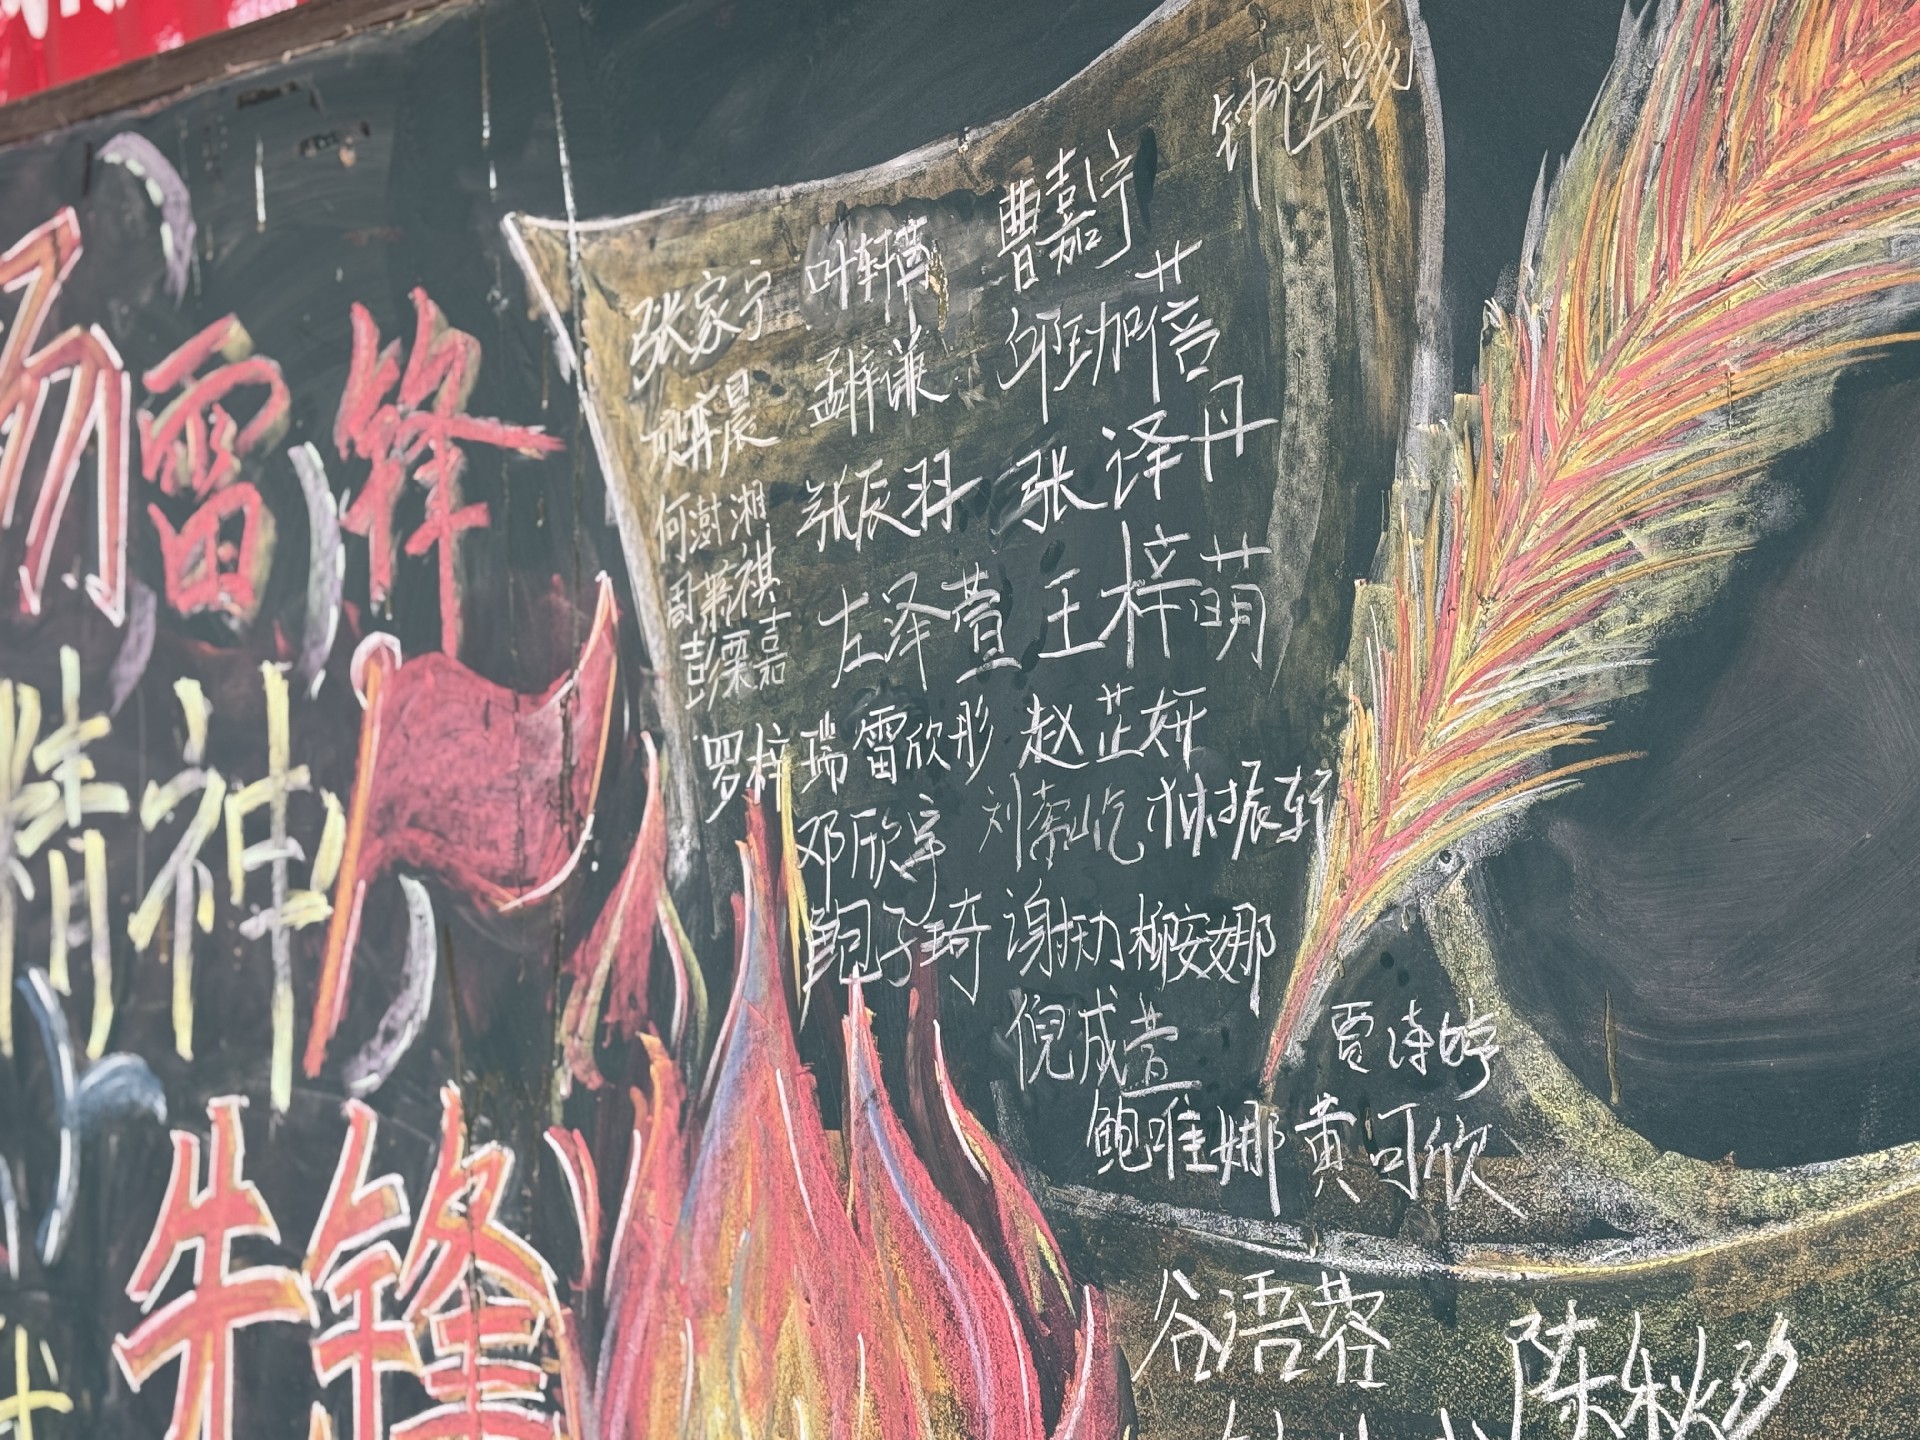 扬雷锋
精神
先锋
曹嘉宁
张家宁 叶轩
孟梓谦 邱珈蓓
弈晨
张辰羽 张译丹
何澍湘
周 祺 左泽萱 王梓萌
彭栗嘉
罗梓瑞 雷欣彤 赵芷妍
邓欣宇 刘 屹 林振轩
鲍子琦 谢 柳安娜
倪成萱 贾诗婷
鲍唯娜 黄可欣
谷语蓉
陈